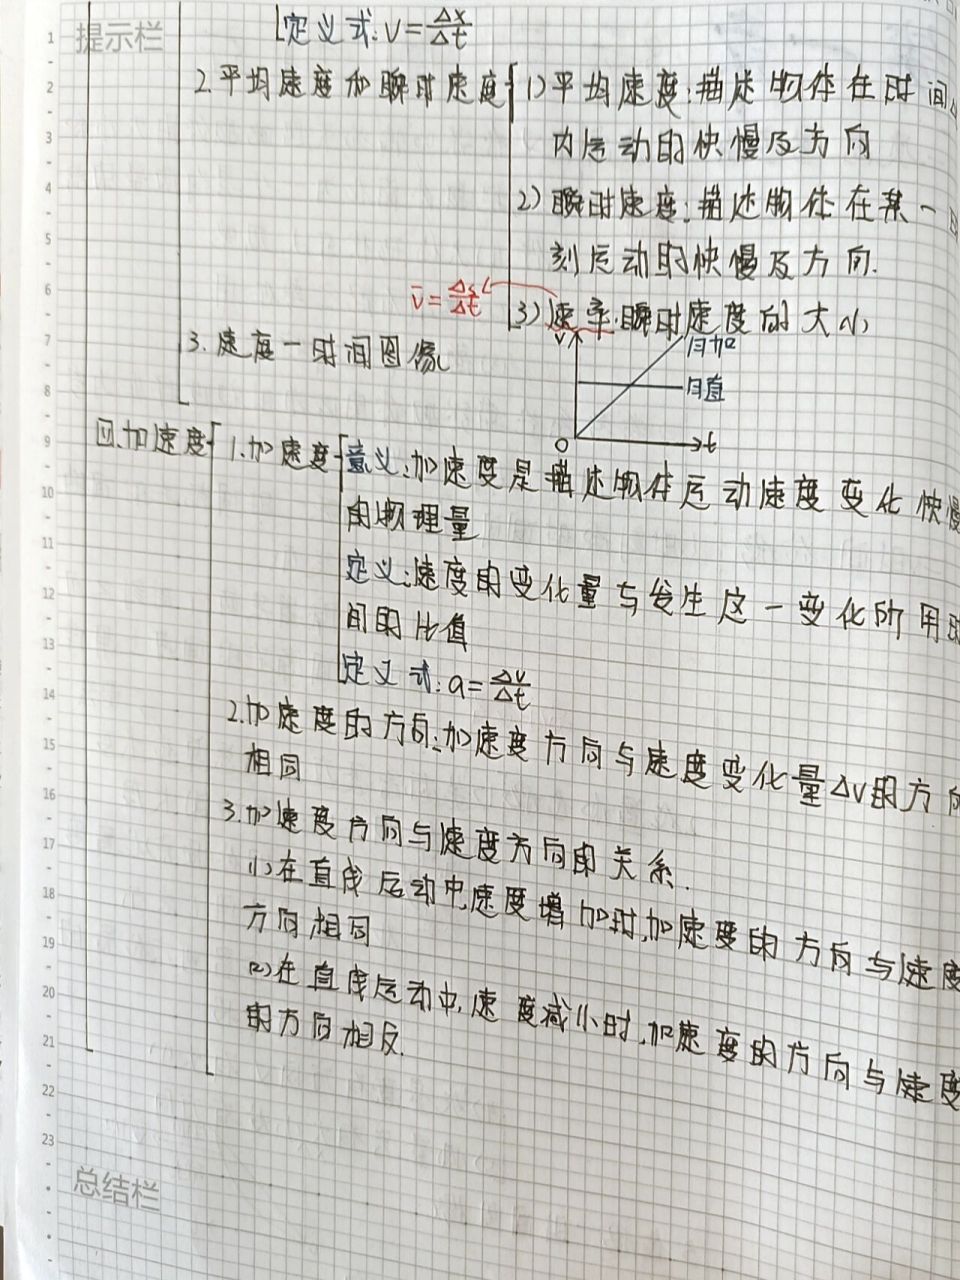 提示栏
定义式:v=Δx/Δt
2.平均速度和瞬时速度
1)平均速度:描述物体在时间
内运动的快慢及方向
2)瞬时速度:描述物体在某一
刻运动的快慢及方向.
v̄=Δs/Δt
3)速率:瞬时速度的大小
3.速度一时间图像
v
匀加
匀直
O
t
四.加速度
1.加速度
意义:加速度是描述物体运动速度变化快慢
的物理量
定义:速度的变化量与发生这一变化所用时
间的比值
定义式:a=Δv/Δt
2.加速度的方向:加速度方向与速度变化量Δv的方向
相同
3.加速度方向与速度方向的关系.
(1)在直线运动中,速度增加时,加速度的方向与速度
方向相同
(2)在直线运动中,速度减小时,加速度的方向与速度
的方向相反.
1
2
3
4
5
6
7
8
9
10
11
12
13
14
15
16
17
18
19
20
21
22
23
总结栏